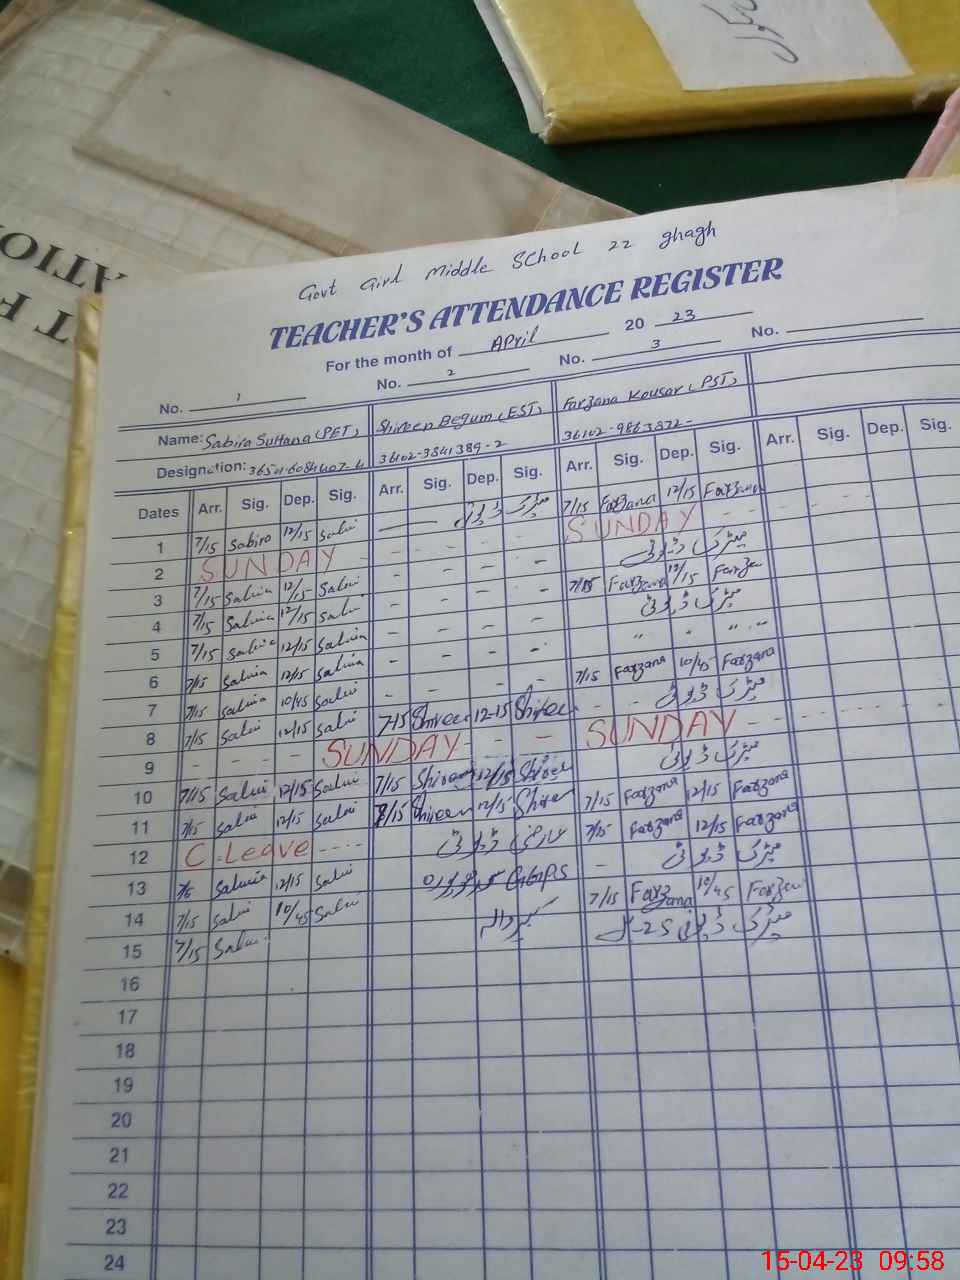 ATION
Govt Girl Middle School 22 ghagh
TEACHER'S ATTENDANCE REGISTER
For the month of April 20 23
No. 1 No. 2 No. 3 No.
Name: Sabira Sultana (PET) Shireen Begum (EST) Farzana Kousar (PST)
Designation: 36102-3841389-2 36102-9863872-
Dates Arr. Sig. Dep. Sig. Arr. Sig. Dep. Sig. Arr. Sig. Dep. Sig. Arr. Sig. Dep. Sig.
1 7/15 Sabira 12/15 Sabii میٹرک ڈیوٹی 7/15 Farzana 12/15 Farzana
2 SUNDAY - - - - SUNDAY - - - -
3 7/15 Sabiia 12/15 Sabii - - - - میٹرک ڈیوٹی
4 7/15 Sabiia 12/15 Sabii - - - - 7/15 Farzana 12/15 Farza
5 7/15 Sabiia 12/15 Sabiia - - - - میٹرک ڈیوٹی
6 7/15 Sabiia 12/15 Sabiia - - - - " " " "
7 7/15 Sabiia 10/45 Sabii - - - - 7/15 Farzana 10/45 Farzana
8 7/15 Sabii 12/15 Sabii 7-15 Shireen 12-15 Shireen - - میٹرک ڈیوٹی
9 - - - - SUNDAY - - SUNDAY - - - -
10 7/15 Sabii 12/15 Sabii 7/15 Shireen 12/15 Shireen میٹرک ڈیوٹی
11 7/15 Sabia 12/15 Sabii 7/15 Shireen 12/15 Shireen 7/15 Farzana 12/15 Farzana
12 C. Leave - - - - ڈیوٹی 7/15 Farzana 12/15 Farzana
13 Sabiia 12/15 Sabii GGPS - میٹرک ڈیوٹی
14 7/15 Sabii 10/45 Sabii 7/15 Farzana 10/45 Farzana
15 7/15 Sabii میٹرک ڈیوٹی
16
17
18
19
20
21
22
23
24
15-04-23 09:58